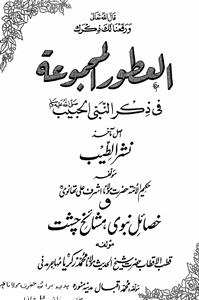 قال اللہ تعالیٰ
ورفعنا لك ذكرك
العطور المجموعة
في ذكر النبي الحبيب ﷺ
اصل ماخذ
نشر الطیب
مؤلفہ
حکیم الامت حضرت مولانا اشرف علی تھانوی
و
خصائل نبوی مشائخ چشت
مؤلفہ
قطب الاقطاب حضرت شیخ الحدیث مولانا محمد زکریا مہاجر مدنی
محمد اقبال مدینہ منورہ